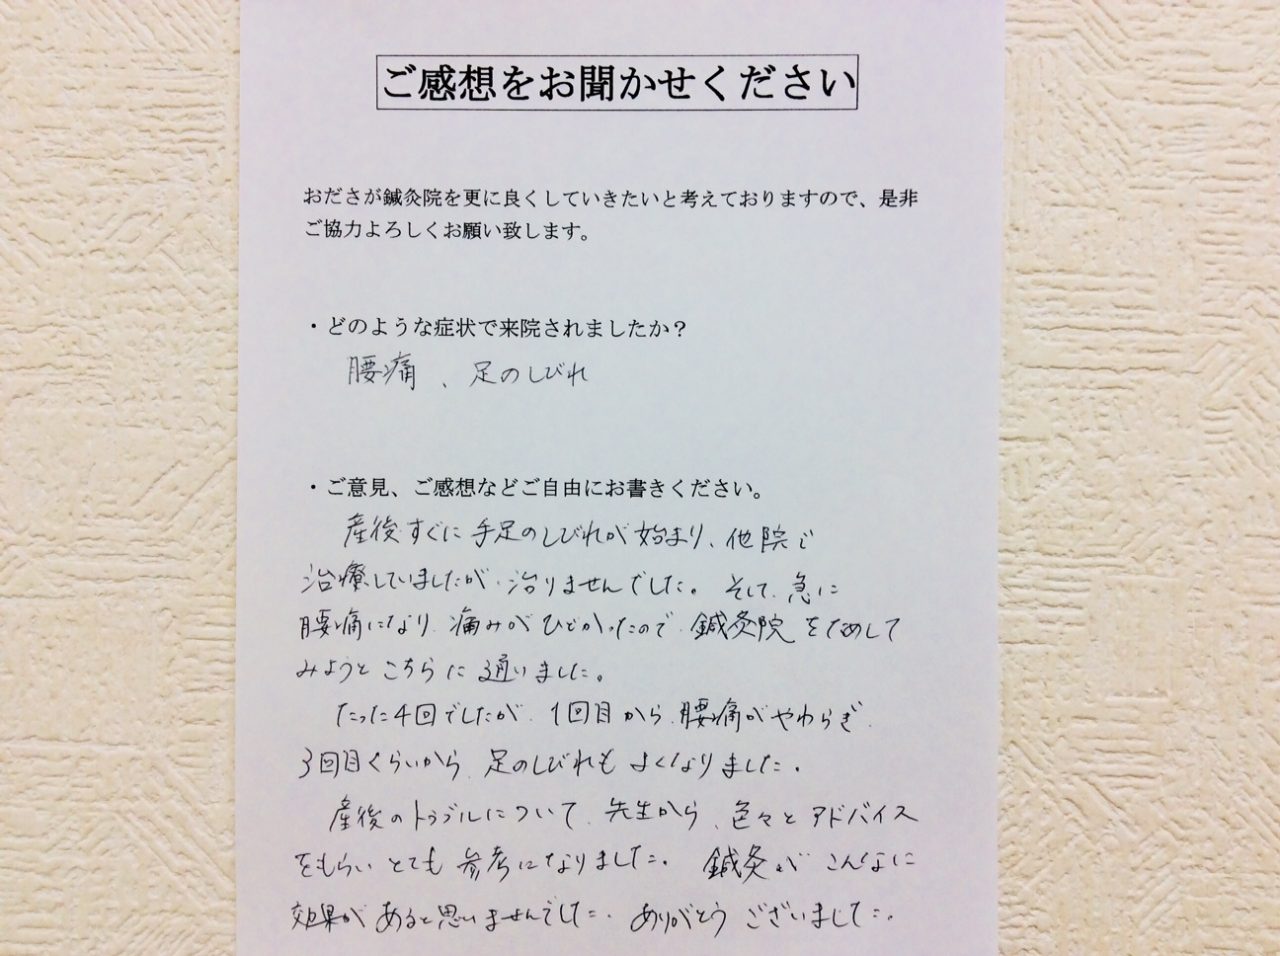 ご感想をお聞かせください
おださが鍼灸院を更に良くしていきたいと考えておりますので、是非
ご協力よろしくお願い致します。
・どのような症状で来院されましたか？
腰痛、足のしびれ
・ご意見、ご感想などご自由にお書きください。
産後すぐに手足のしびれが始まり、他院で
治療していましたが、治りませんでした。そして、急に
腰痛になり、痛みがひどかったので、鍼灸院をためして
みようとこちらに通いました。
たった4回でしたが、1回目から、腰痛がやわらぎ、
3回目くらいから、足のしびれもよくなりました。
産後のトラブルについて、先生から、色々とアドバイス
をもらいとても参考になりました。鍼灸がこんなに
効果があると思いませんでした。ありがとうございました。